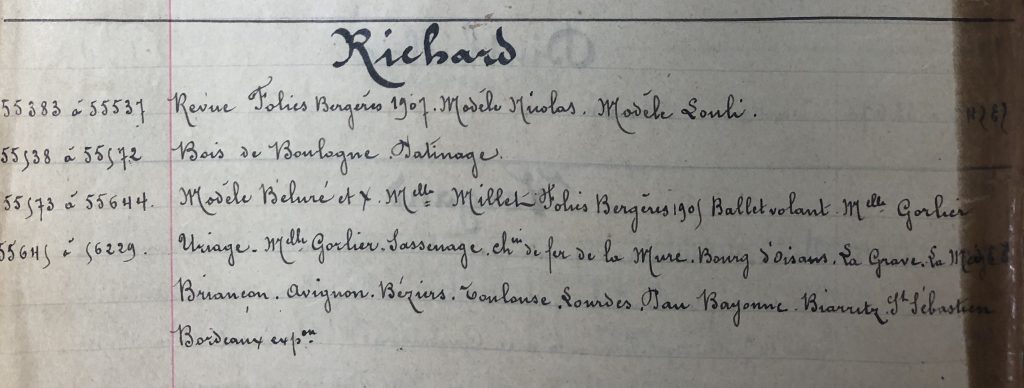 Richard
55383 à 55537 Revue Folies Bergères 1907. Modèle Nicolas. Modèle Louli.
55538 à 55572 Bois de Boulogne. Patinage.
55573 à 55644. Modèle Béluré et X. Melle Millet Folies Bergères 1905 Ballet volant. Melle Gorlier
55645 à 56229. Uriage. Melle Gorlier. Sassenage. chin de fer de la Mure. Bourg d'Oisans. La Grave. La
Briançon. Avignon. Béziers. Toulouse. Lourdes. Pau Bayonne. Biarritz. St Sébastien
Bordeaux expon